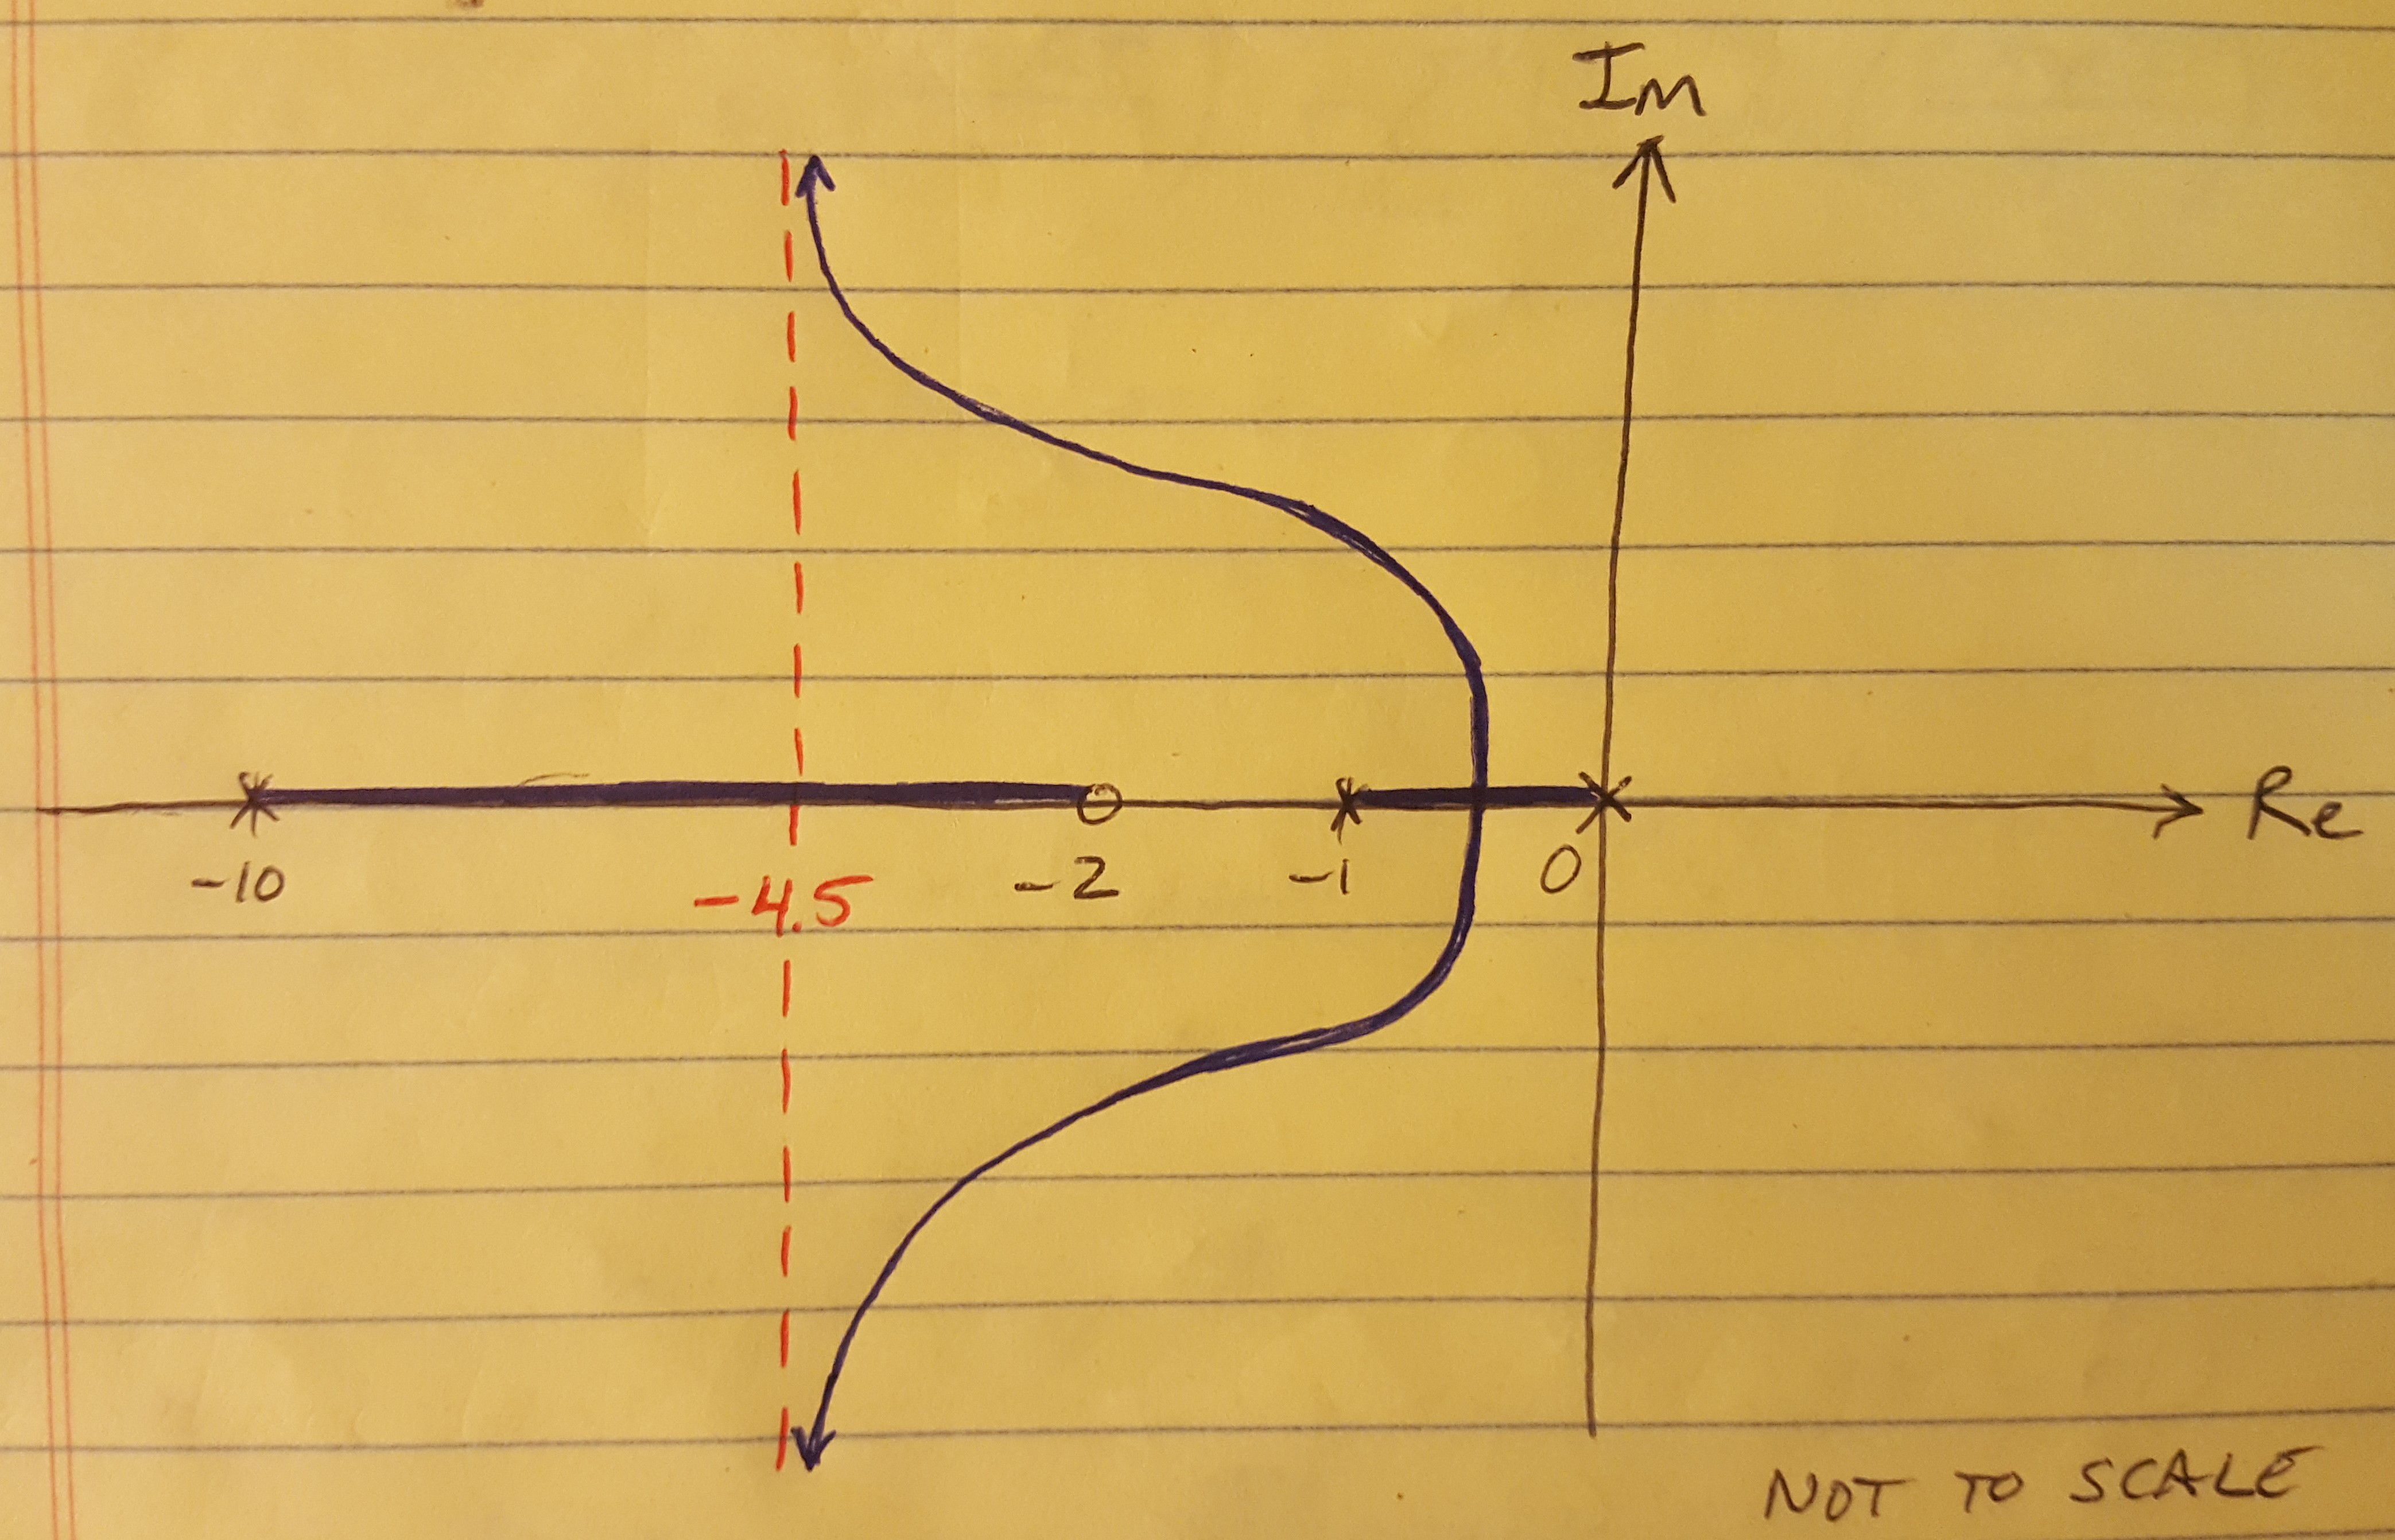 Im
Re
-10 -4.5 -2 -1 0
NOT TO SCALE